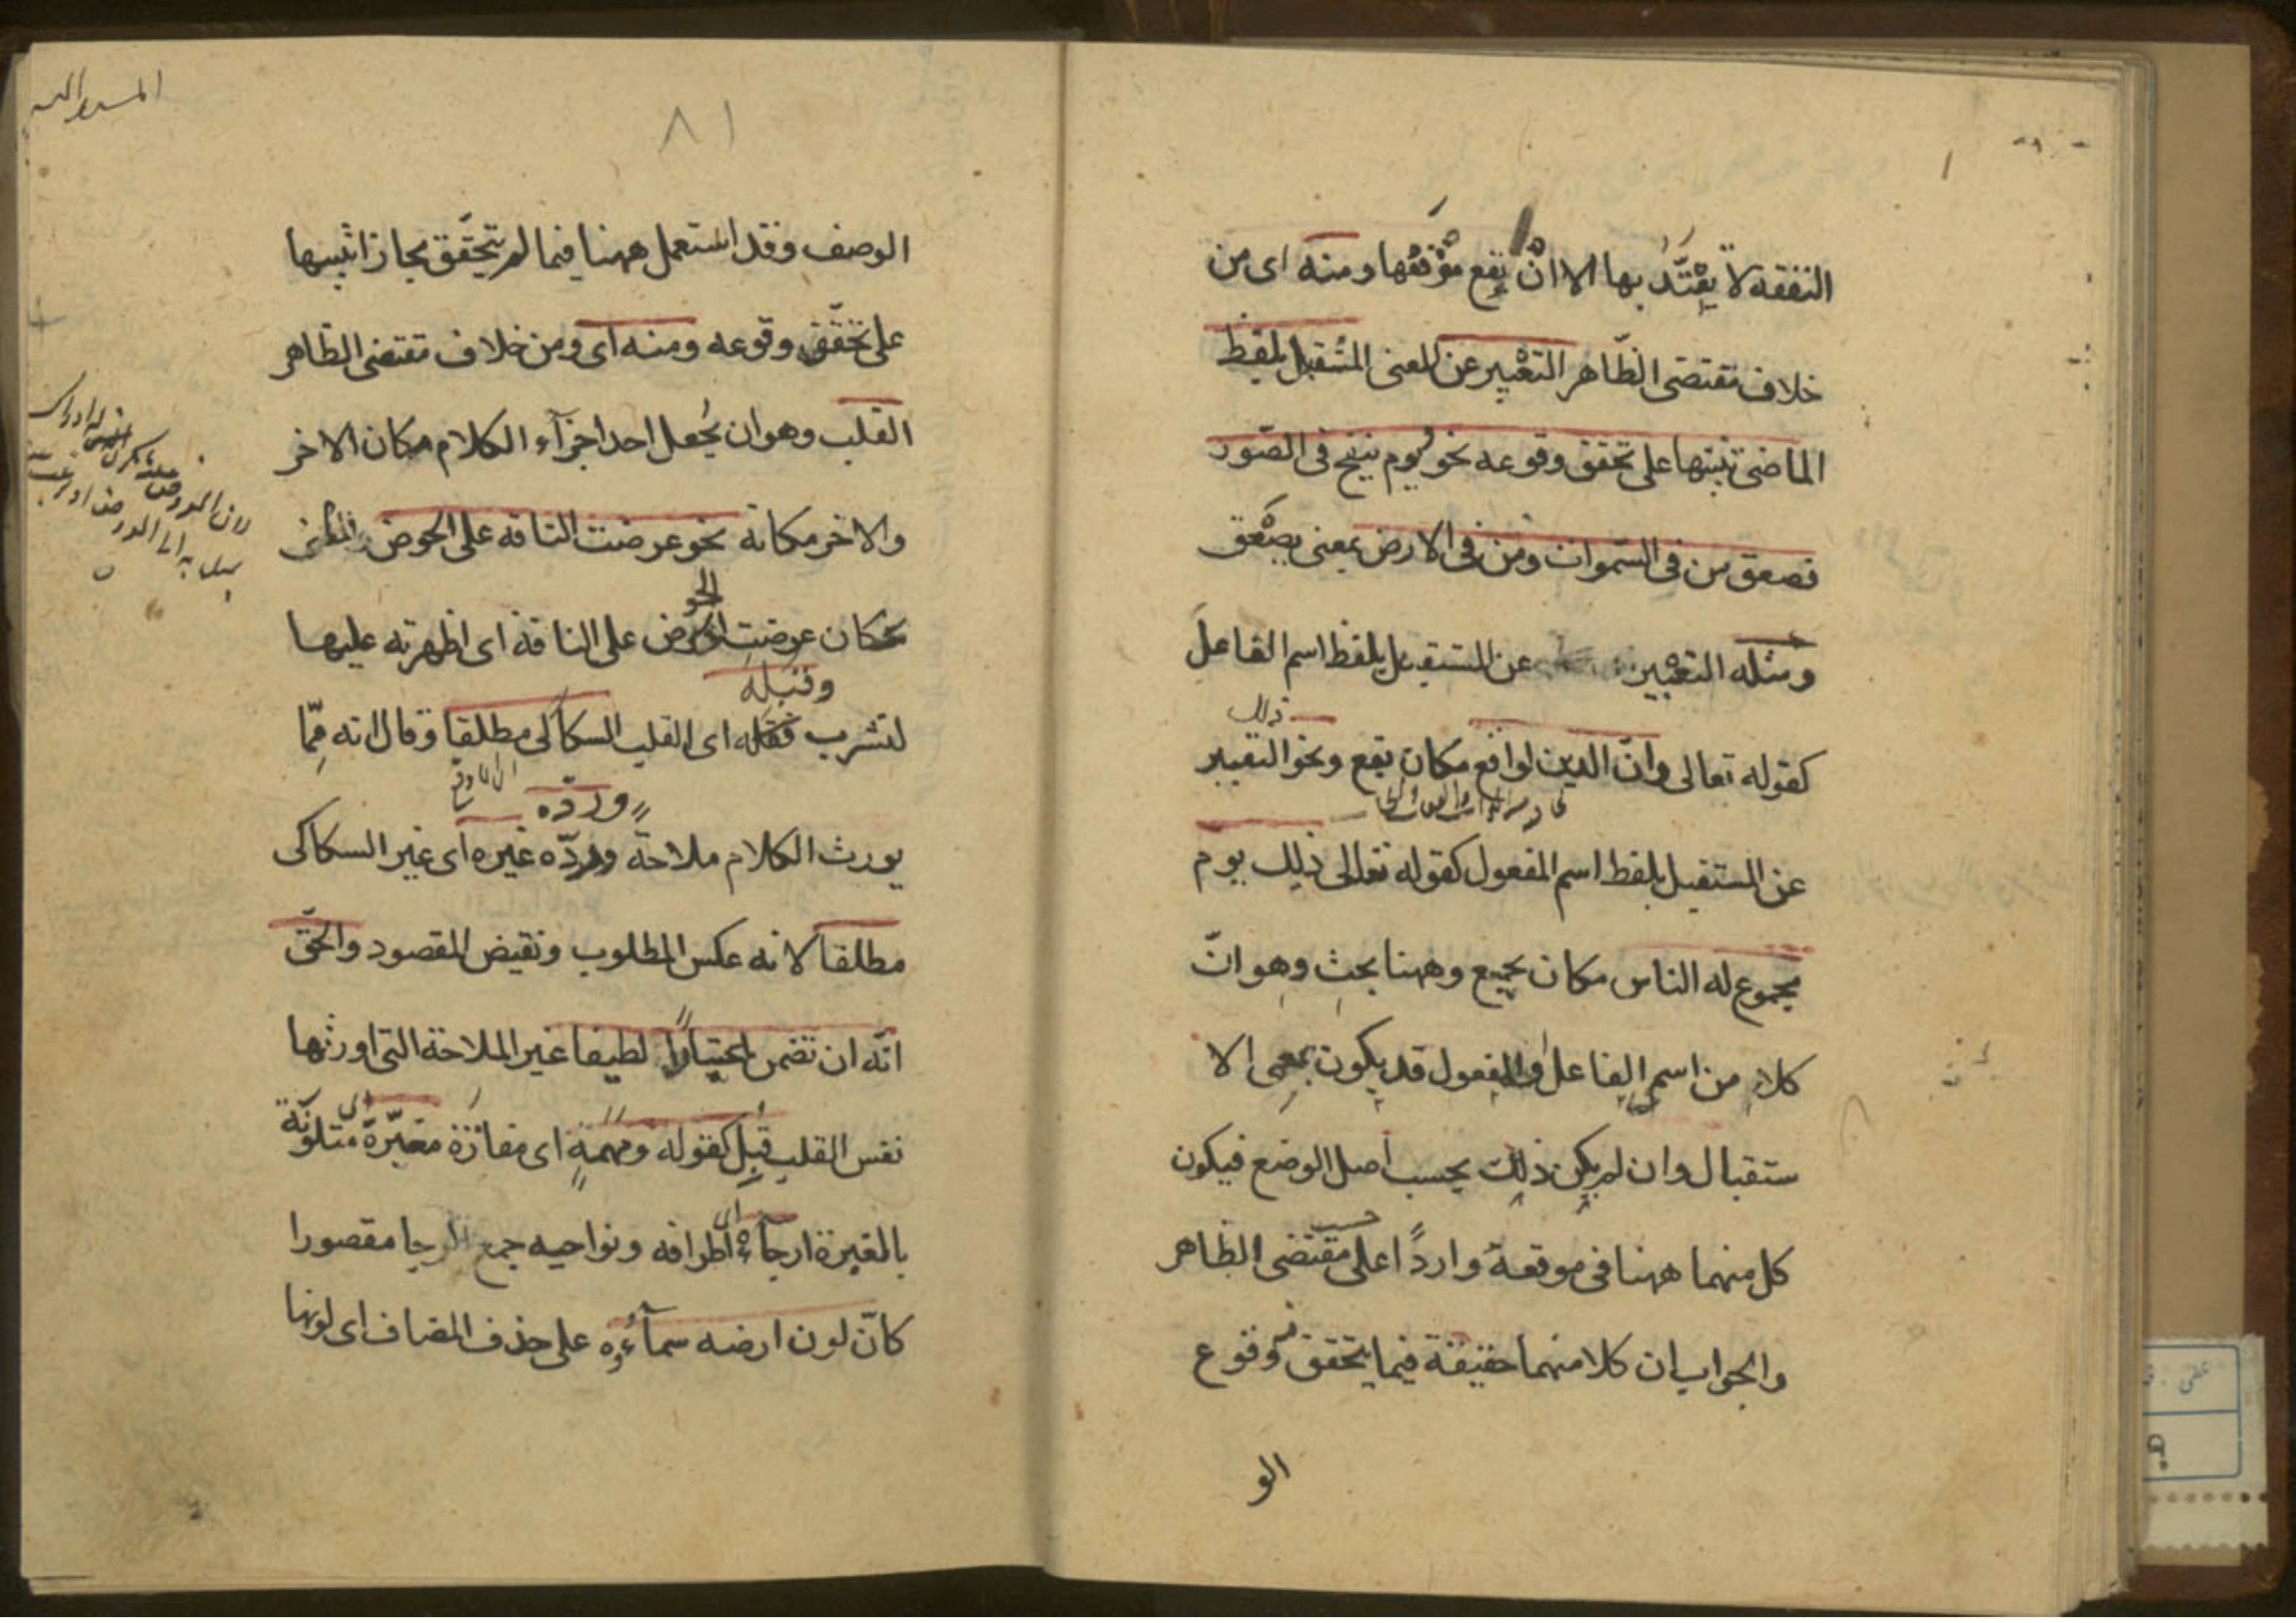 النفقة لا يعتد بها الا ان يقع موقعها ومنه اى من
خلاف مقتضى الظاهر التعبير عن المعنى المستقبل بلفظ
الماضى تنبيها على تحقق وقوعه نحو يوم ينفخ فى الصور
فصعق من فى السموات ومن فى الارض بمعنى يصعق
ومثله التعبير عن المستقبل بلفظ اسم الفاعل
كقوله تعالى وان الدين لواقع مكان يقع ونحو التعبير
ذلك
عن المستقبل بلفظ اسم المفعول كقوله تعالى ذلك يوم
مجموع له الناس مكان يجمع وههنا بحث وهو ان
كلا من اسم الفاعل والمفعول قد يكون بمعنى الا
ستقبال وان لم يكن ذلك بحسب اصل الوضع فيكون
كل منهما ههنا فى موقعه واردا على مقتضى الظاهر
حسب
والجواب ان كلا منهما حقيقة فيما يتحقق وقوع
الو
٨١
الوصف وقد استعمل ههنا فيما لم يتحقق مجازا تنبيها
على تحقق وقوعه ومنه اى ومن خلاف مقتضى الظاهر
القلب وهو ان يجعل احد اجزآء الكلام مكان الاخر
والاخر مكانه نحو عرضت الناقة على الحوض
مكان عرضت الحوض على الناقة اى اظهرته عليها
الحو
لتشرب فقبله اى القلب السكاكى مطلقا وقال انه مما
وقبله
يورث الكلام ملاحة ورده غيره اى غير السكاكى
ورده
مطلقا لانه عكس المطلوب ونقيض المقصود والحق
انه ان تضمن اعتبارا لطيفا غير الملاحة التى اورثها
نفس القلب قبل كقوله ومهمة اى مفازة مغبرة متلونة
اى
بالغبرة ارجاءه اطرافه ونواحيه جمع الرجا مقصورا
اى
كان لون ارضه سمآؤه على حذف المضاف اى لونها